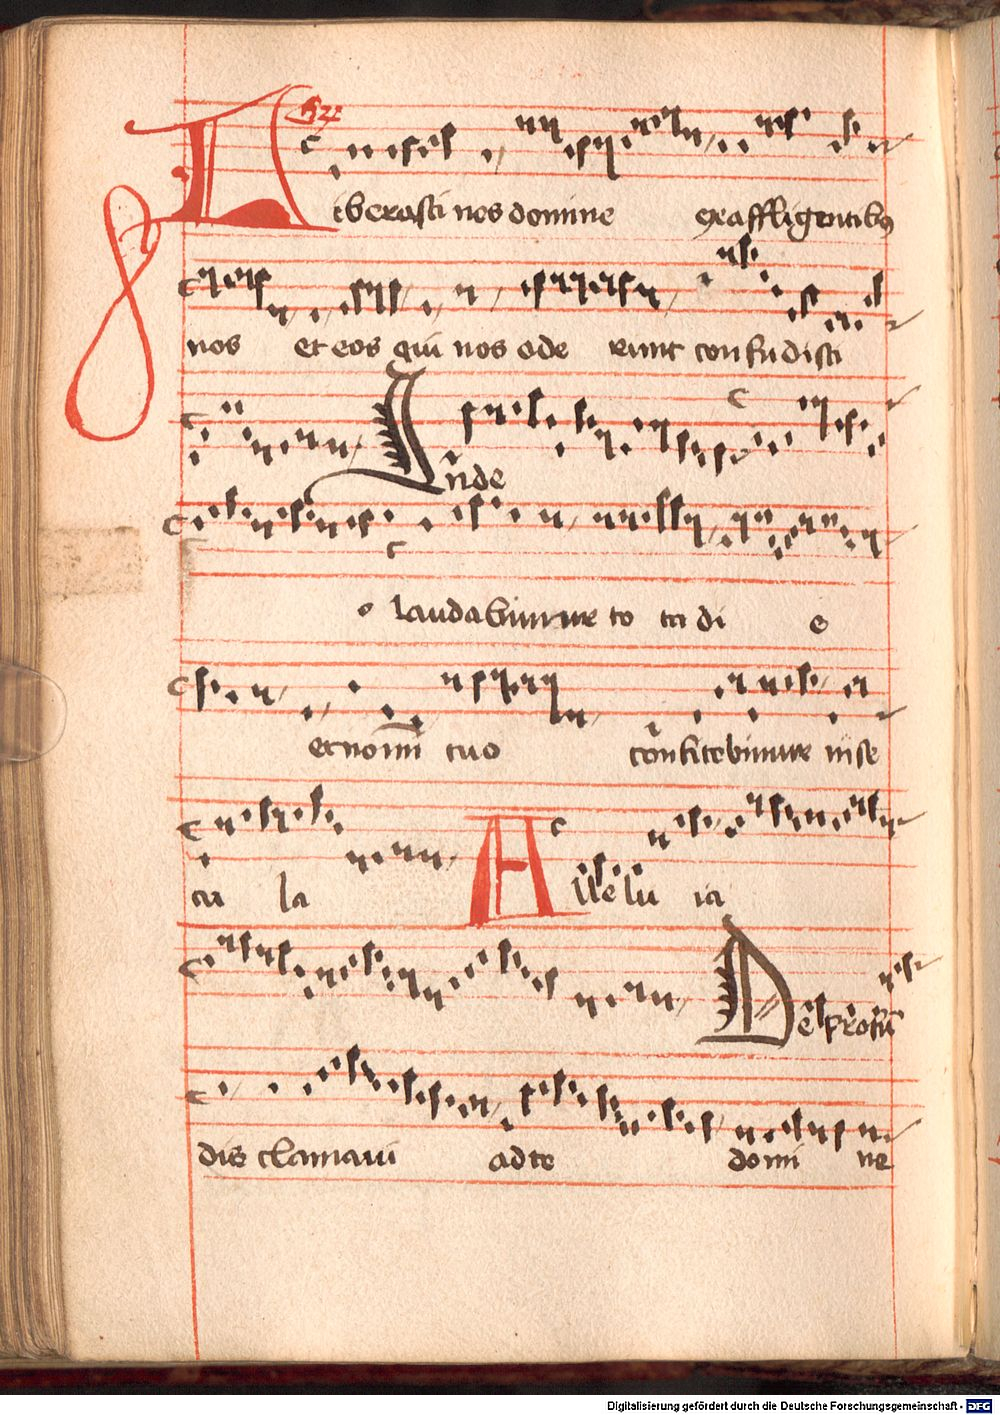 Liberasti nos domine ex affligentibꝰ
nos et eos qui nos ode runt confudisti
In̄de
o laudabimur to ta di e
et noīni tuo cōfitebimur in se
cu la Allelu ia
De profū
dis clamaui ad te domi ne
Digitalisierung gefördert durch die Deutsche Forschungsgemeinschaft - DFG